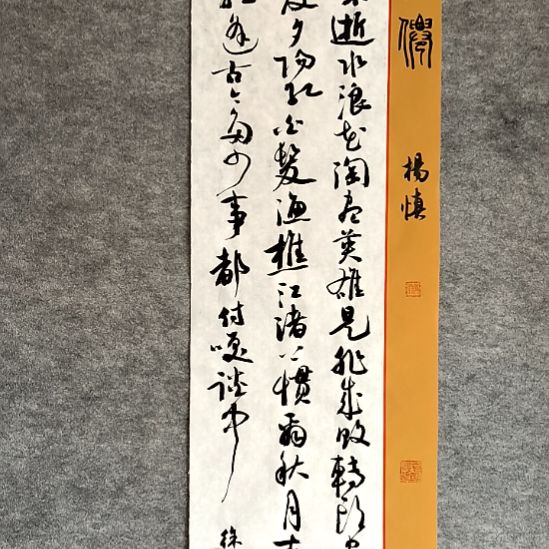 僊
楊慎
逝水浪花淘盡英雄是非成敗轉頭
度夕陽紅白髮漁樵江渚上慣看秋月
逢古今多少事都付咲談中
徐